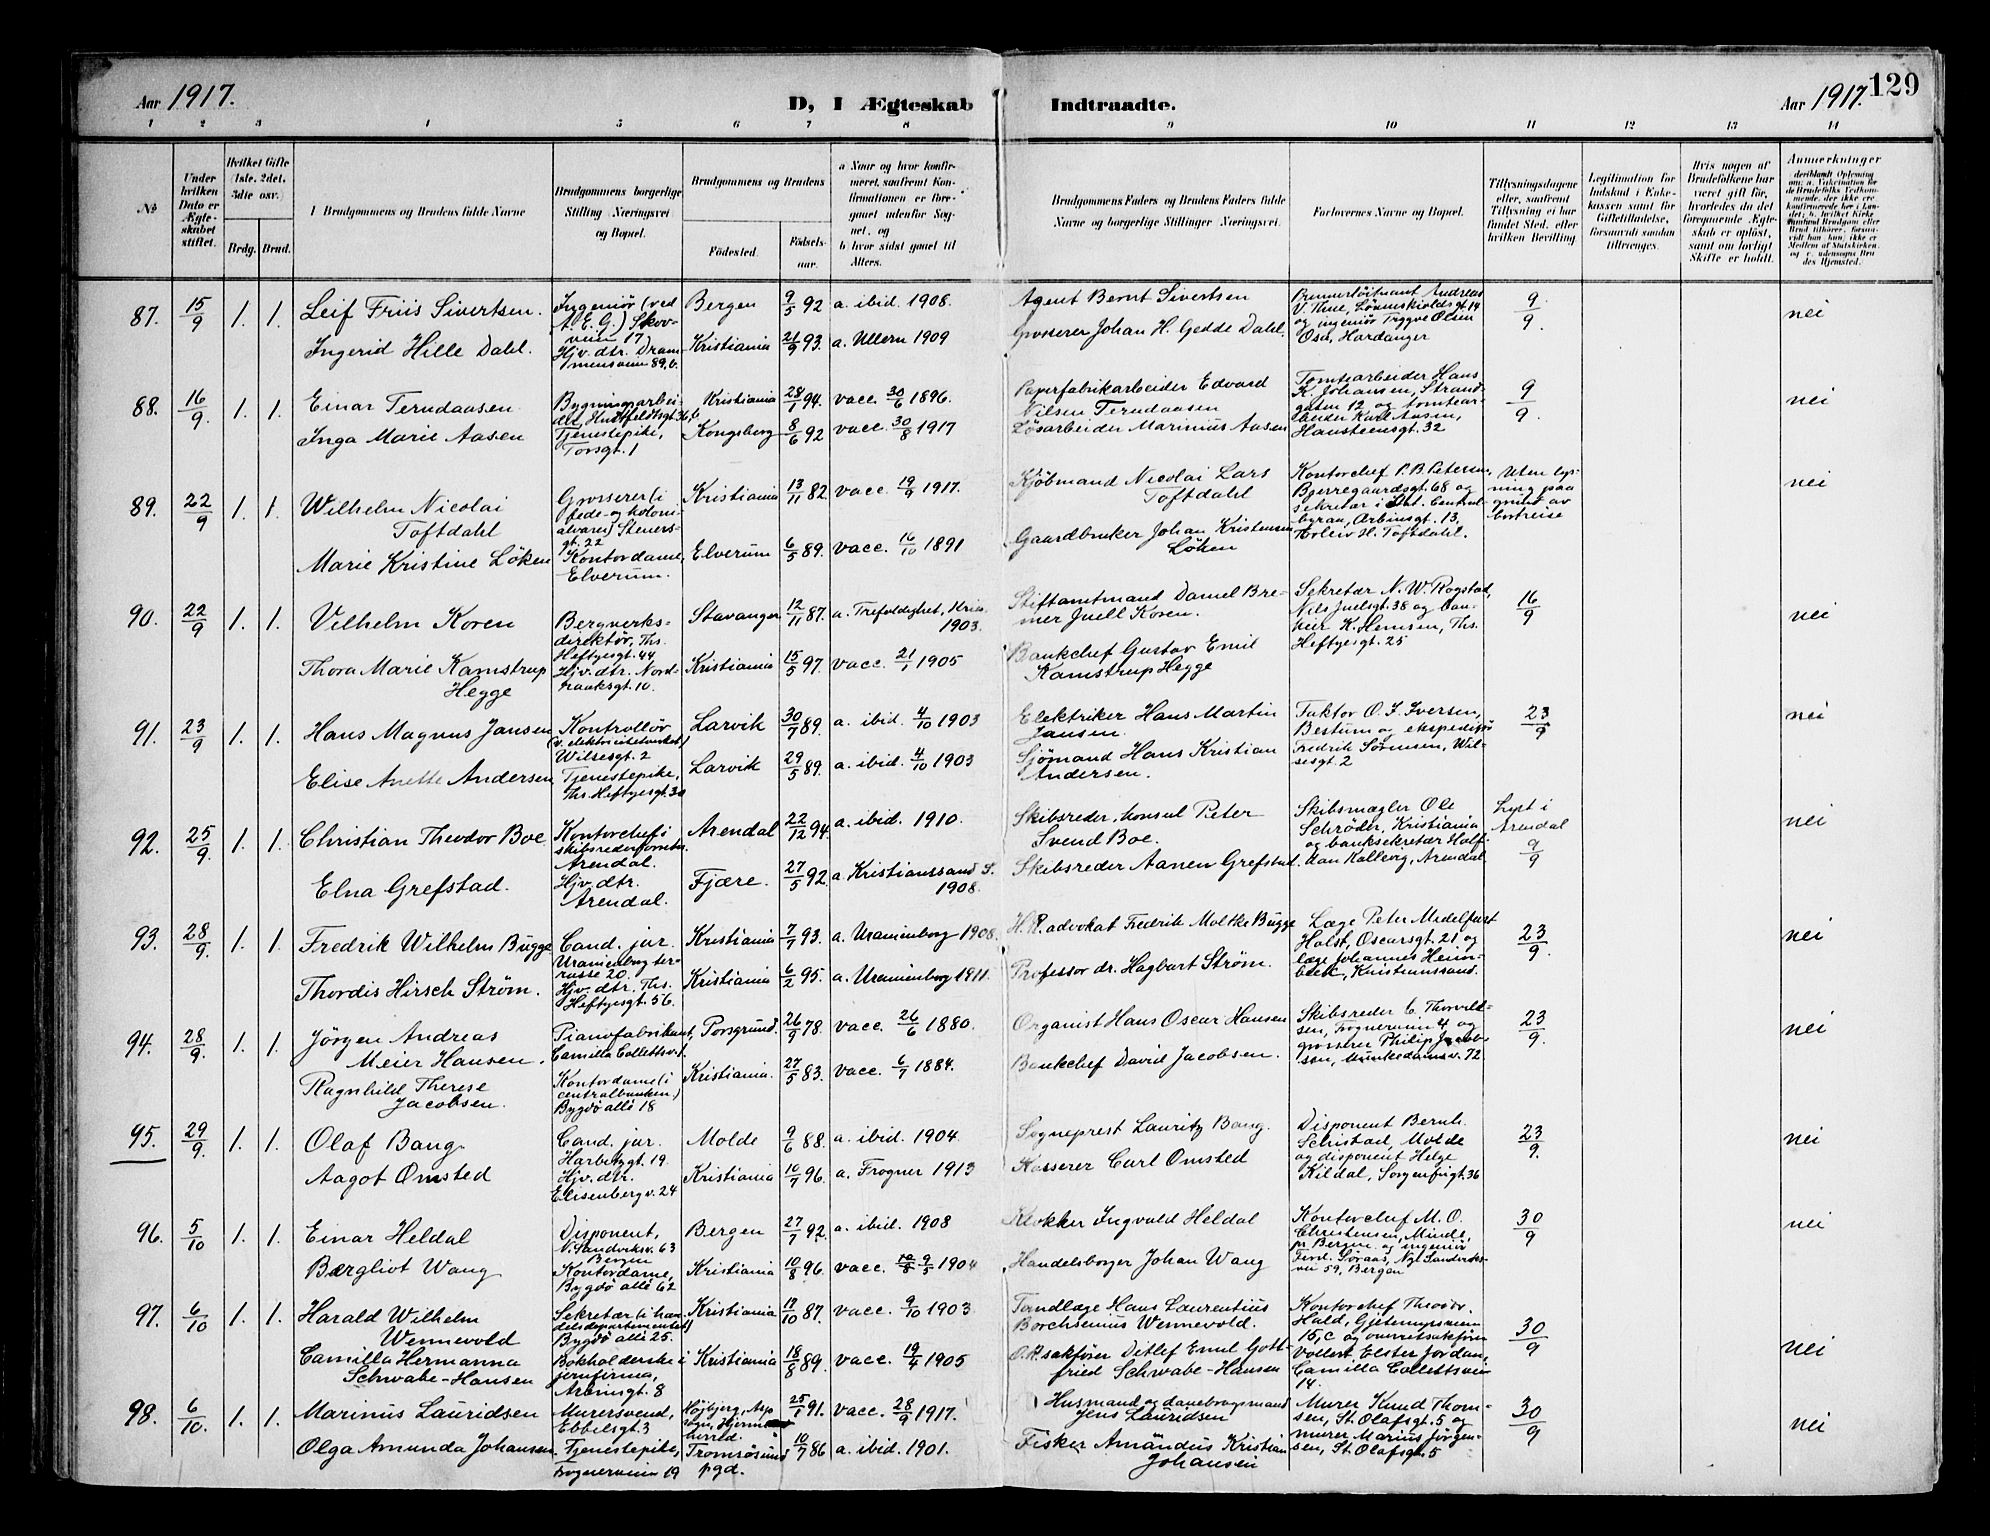 Aar 1917.
D, I Ægteskab
Indtraadte.
Aar 1917.
129
1 2 3 4 5 6 7 8 9 10 11 12 13 14
№
Under hvilken Dato er Ægteskabet stiftet.
Hvilket Gifte (1ste, 2det, 3dte osv.)
Brdg. Brud.
Brudgommens og Brudens fulde Navne
Brudgommens borgerlige Stilling (Næringsvei) og Bopæl.
Brudgommens og Brudens
Fødested.
Fødselsaar.
a Naar og hvor konfirmeret, saafremt Konfirmationen er foregaaet udenfor Sognet, og
b hvor sidst gaaet til Alters.
Brudgommens Faders og Brudens Faders fulde Navne og borgerlige Stillinger (Næringsvei.
Forlovernes Navne og Bopæl.
Tillysningsdagene eller, saafremt Tillysning ei har fundet Sted, efter hvilken Bevilling.
Legitimation for Indskud i Enkekassen samt for Giftetilladelse, forsaavidt saadan tiltrænges.
Hvis nogen af Brudefolkene har været gift før, hvorledes da det foregaaende Ægteskab er opløst, samt om lovligt Skifte er holdt.
Anmerkninger
87. 15/9 1. 1. Leif Friis Sivertsen. Ingeniør (ved A.E.G.) Skovveien 17 Bergen 9/5 92 a. ibid. 1908. Agent Bernt Sivertsen
Ingerid Hille Dahl. Hjv. dtr. Drammensveien 89, b. Kristiania 21/9 93. a. Ullern 1909 Grosserer Johan H. Gedde Dahl.
Premierløitnant Andreas V. Thue, Løvenskioldsgt. 14 og ingeniør Trygve Olsen Osa, Hardanger 9/9. nei
88. 16/9 1. 1. Einar Terndaasen Bygningsarbeider, Huitfeldtsgt. 36, b Kristiania 28/1 94. vacc. 30/6 1896. Papirfabrikarbeider Edvard Nilsen Terndaasen
Inga Marie Aasen Tjenestepike, Torsgt. 1 Kongsberg 8/6 92 vacc. 30/8 1917 Løsarbeider Marinius Aasen
Tomtearbeider Hans K. Johansen, Strandgaten 12 og tomtearbeider Karl Aasen, Hansteensgt. 32 9/9. nei
89. 22/9 1. 1. Wilhelm Nicolai Toftdahl Grosserer (i fede- og kolonialvarer) Stenersgt. 22 Kristiania 13/11 82 vacc. 19/9 1917. Kjøbmand Nicolai Lars Toftdahl
Marie Kristine Løken Kontordame, Elverum. Elverum 6/5 89. vacc. 16/10 1891 Gaardbruker Johan Kristensen Løken
Kontorchef P. B. Petersen, Bjerregaardsgt. 68 og sekretær i Stat. Centralbyraa, Arbinsgt. 13, H. Toftdahl. Uten lysning paa grund av bortreise nei
90. 22/9 1. 1. Vilhelm Koren Bergverksdirektør, Ths. Heftyesgt. 44 Stavanger 12/11 87. a. Trefoldighet, Kria. 1903. Stiftamtmand Daniel Bremer Juell Koren.
Thora Marie Kamstrup Hegge Hjv. dtr. Nordraaksgt. 10. Kristiania 15/5 97. vacc. 21/1 1905 Bankchef Gustav Emil Kamstrup Hegge
Sekretær N. W. Rogstad, Nils Juelsgt. 38 og bankier K. Hemsen, Ths. Heftyesgt. 25 16/9 nei
91. 23/9 1. 1. Hans Magnus Jansen Kontrollør (v. elektricitetsverket) Wilsesgt. 2 Larvik 30/7 89. a. ibid. 4/10 1903 Elektriker Hans Martin Jansen.
Elise Anette Andersen Tjenestepike, Ths. Heftyesgt. 30 Larvik 29/5 89. a. ibid. 4/10 1903 Sjømand Hans Kristian Andersen.
Faktor O. J. Iversen, Bestum og ekspeditør Fredrik Sørensen, Wilsesgt. 2 23/9 nei
92. 25/9. 1. 1. Christian Theodor Boe Kontorchef i skibsrederforretn. Arendal. Arendal 22/12 94 a. ibid. 1910. Skibsreder, konsul Peter Svend Boe.
Elna Grefstad. Hjv. dtr. Arendal. Fjære. 27/5 92. a. Kristianssand S. 1908. Skibsreder Aanen Grefstad.
Skibsmægler Ole Schrøder, Kristiania og banksekretær Halfdan Kalleviq, Arendal Lyst i Arendal 9/9 nei
93. 28/9. 1. 1. Fredrik Wilhelm Bugge Cand. jur. Uranienborg terrasse 20. Kristiania 7/7 93. a. Uranienborg 1908. H.R. advokat Fredrik Moltke Bugge
Thordis Hirsch Strøm. Hjv. dtr. Ths. Heftyesgt. 56. Kristiania 6/2 95. a. Uranienborg 1911. Professor dr. Hagbart Strøm.
Læge Peter Midelfart Holst, Oscarsgt. 21 og læge Johannes Heiberg, Kristianssand. 23/9. nei
94. 28/9. 1. 1. Jørgen Andreas Meier Hansen. Pianofabrikant, Camilla Collettsv. 1. Porsgrund. 26/9 78. vacc. 26/6 1880. Organist Hans Oscar Hansen
Ragnhild Therese Jacobsen. Kontordame (i centralbanken) Bygdø allé 18 Kristiania. 27/5 83. vacc. 6/7 1884. Bankchef David Jacobsen.
Skibsreder C. Thorvaldsen, Frognerveien 4 og grosserer Philip Jacobsen, Munkedamsv. 72 23/9. nei
95. 29/9. 1. 1. Olaf Bang Cand. jur. Harbitzgt. 19 Molde 9/6 88. a. ibid. 1904. Sogneprest Lauritz Bang.
Aagot Omsted Hjv. dtr. Elisenbergv. 24 Kristiania 10/7 96. a. Frogner 1913 Kasserer Carl Omsted
Disponent Bernh. Schistad, Molde og disponent Helge Kildal, Sorgenfrigt. 36 23/9. nei
96. 5/10 1. 1. Einar Heldal Disponent, N. Sandviksv. 63 Bergen Bergen 27/7 92. a. ibid. 1908 Klokker Ingvald Heldal
Bergliot Wang Kontordame, Bygdø allé 62 Kristiania 10/8 96. vacc. 10/8 9/5 1904 Handelsborger Johan Wang
Kontorchef M. O. Christensen, Minde, pr. Bergen og ingeniør Ferd. Søraas, Nye Sandviksvei 59, Bergen 30/9 nei
97. 6/10 1. 1. Harald Wilhelm Wennevold Sekretær (i handelsdepartementet) Bygdø allé 25. Kristiania 17/10 87. vacc. 9/10 1903 Tandlæge Hans Laurentius Borchsenius Wennevold.
Camilla Hermanna Schwabe-Hansen Bokholderske i jernfirma, Arbinsgt. 8 Kristiania 18/8 89. vacc. 19/4 1905 O.r.sakfører Ditlef Emil Gottfried Schwabe-Hansen
Kontorchef Theodor Hald, Gjetemyrsveien 15, c og overretssakfører Vollert Elster Jordan, Camilla Collettsvei 14. 30/9 nei
98. 6/10. 1. 1. Marinus Lauridsen Murersvend, Ebbelsgt. 3 Højbjerg, Asp sogn, Hjerm herred. 25/1 91. vacc. 28/9 1917. Husmand og danebrogsmand Jens Lauridsen
Olga Amunda Johansen Tjenestepike, Frognerveien 19 Tromsøsund pgd. 10/7 86 a. ibid. 1901. Fisker Amandus Kristian Johansen
Murer Knud Thomsen, St. Olafsgt. 5 og murer Marius Jørgensen, St. Olafsgt. 5 30/9 nei